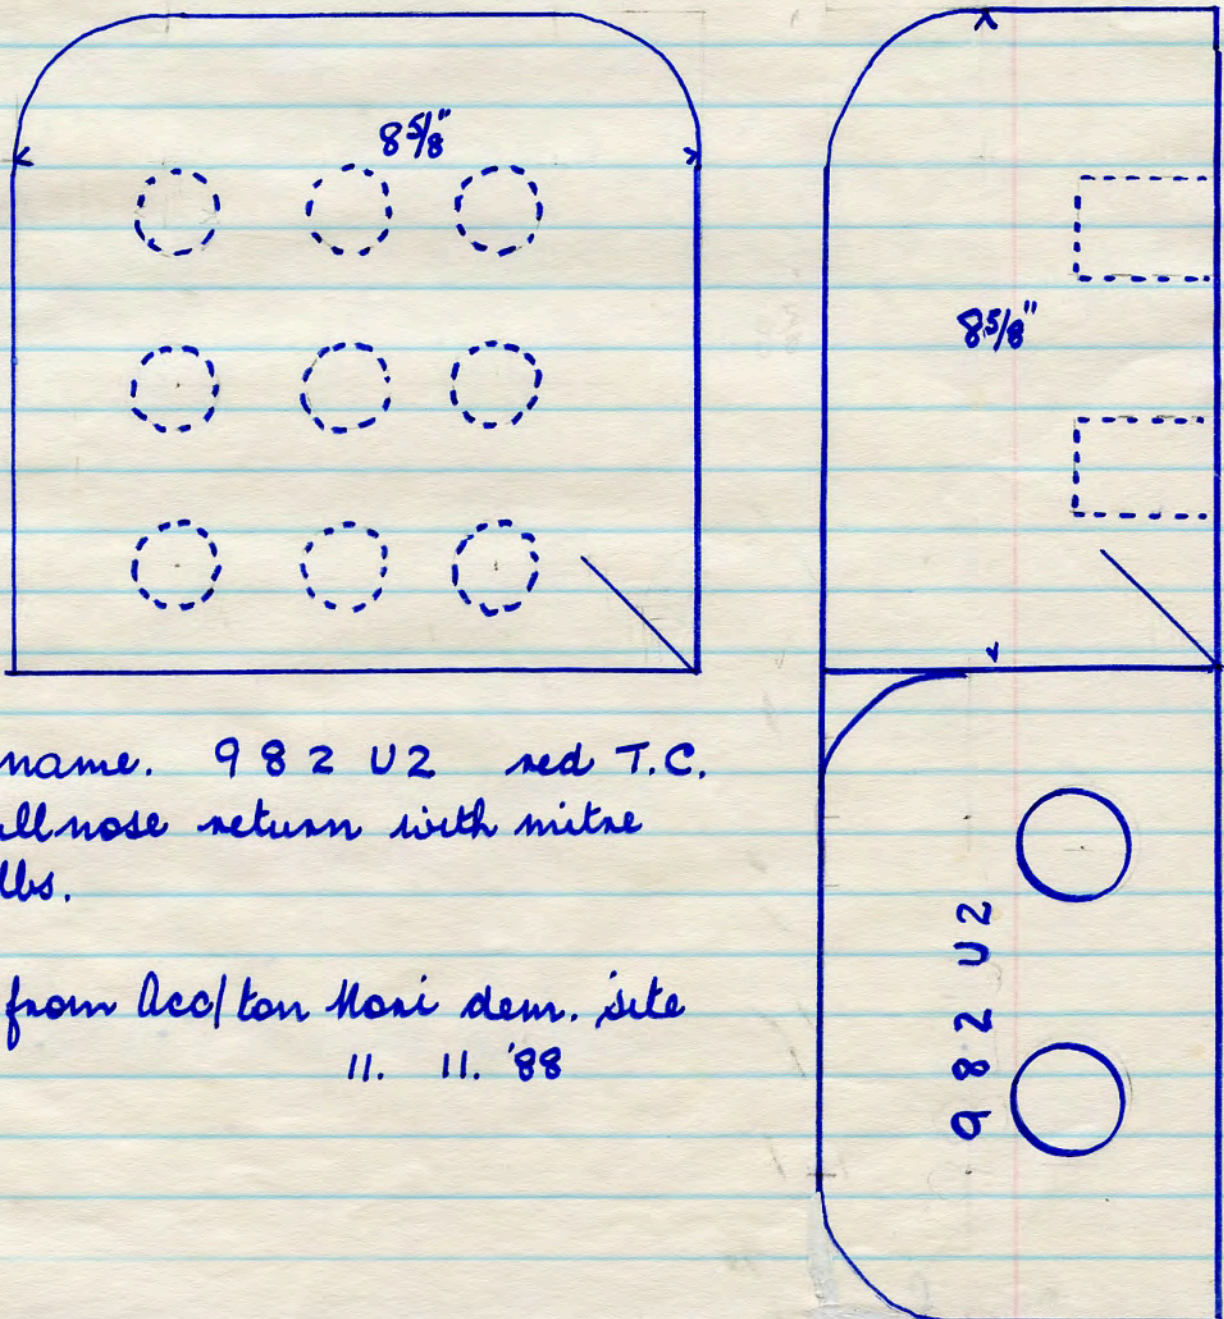 8 5/8"
8 5/8"
name. 982 U2 red T.C.
llnose return with mitre
lbs.
from Acc/ton Mori dem. site
11. 11. '88
982 U2